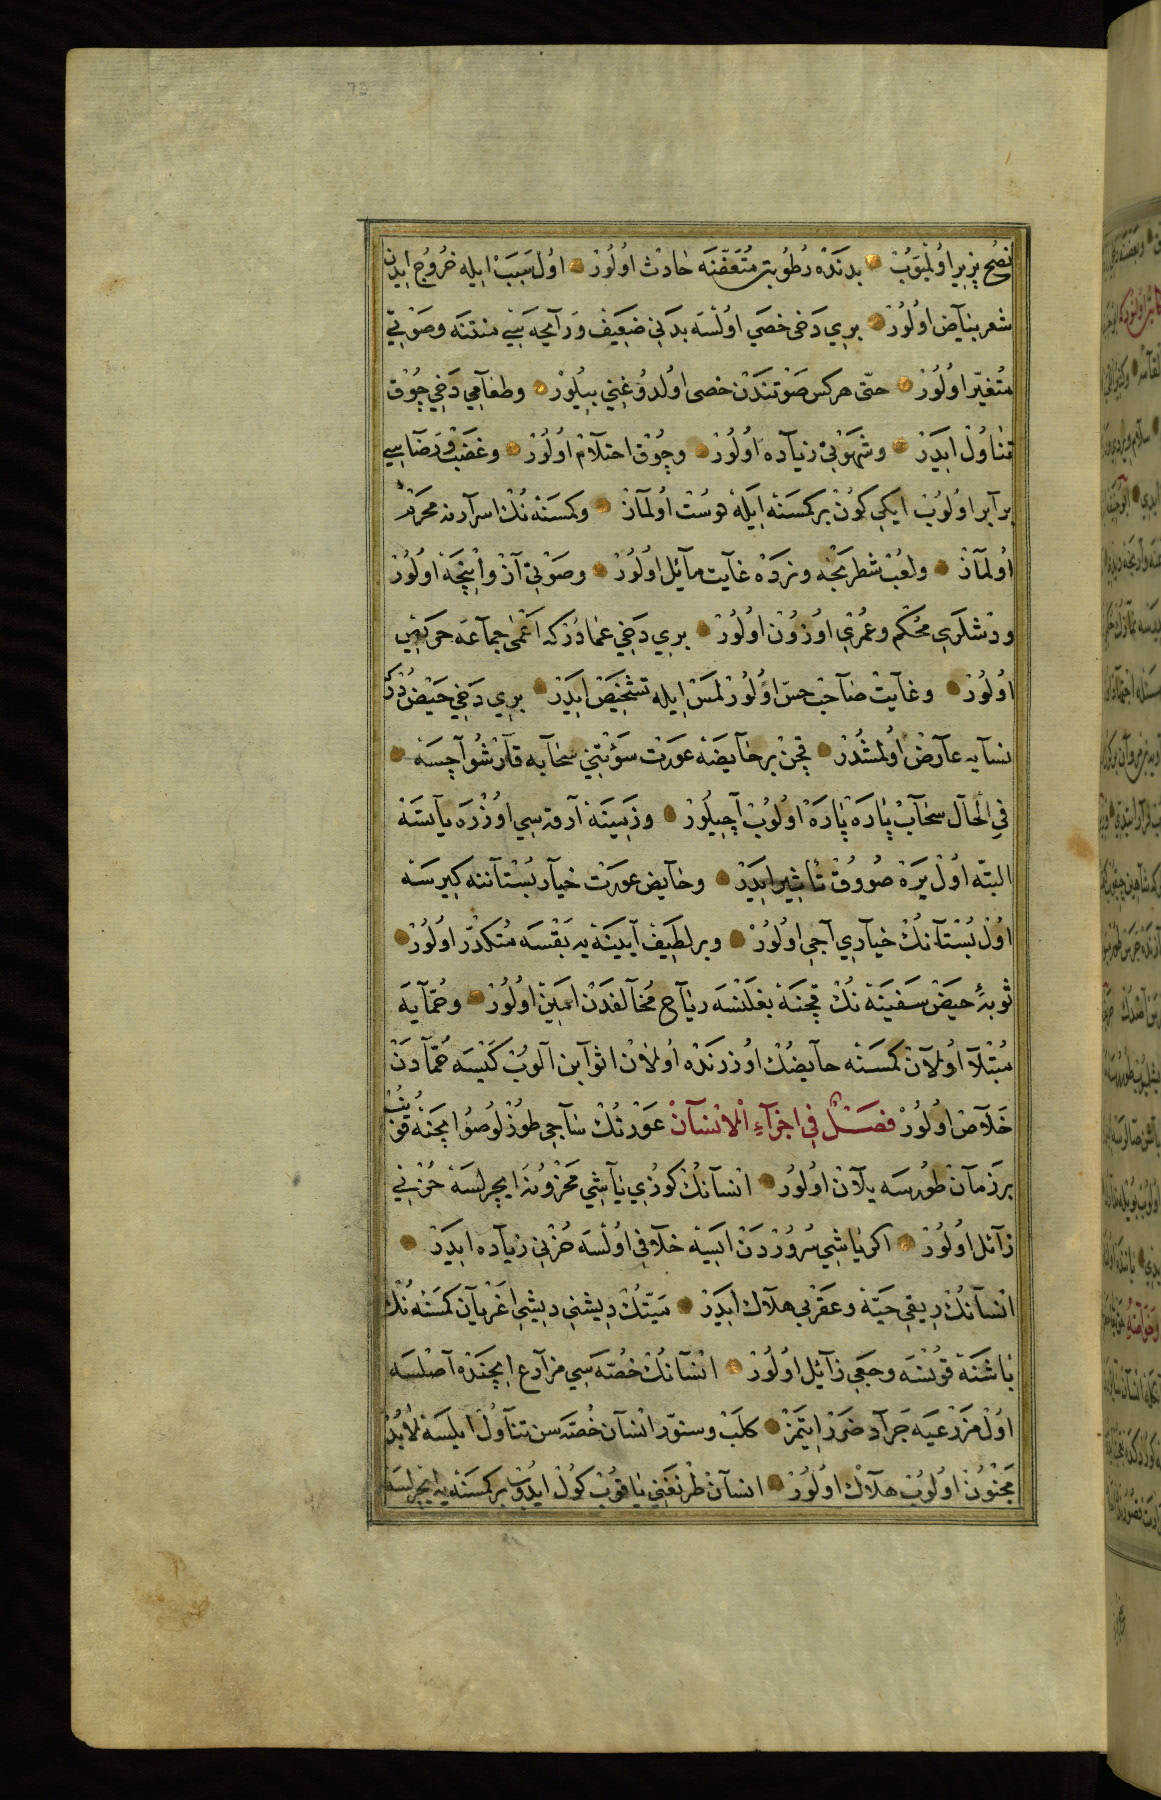 نضج پزیر اولمیوب بدنده رطوبت متعفنه حادث اولور اول سبب ایله خروج ایدن
شعر بیاض اولور بری دخی خصی اولسه بدنی ضعیف و رایحه سی منتنه و صوتی
متغیر اولور حتی هرکس صوتندن خصی اولدوغنی بیلور و طعامی دخی چوق
تناول ایدر و شهوتی زیاده اولور و چوق احتلام اولور و غضب و رضاسی
برابر اولوب ایکی کون بر کمسنه ایله دوست اولماز و کمسنه نك اسرارنه محرم
اولماز و لعب شطرنجه و نرده غایت مایل اولور و صوتی آز و اینجه اولور
و دشلری محکم و عمری اوزون اولور بری دخی عمادر که اعمی جماعه حریص
اولور و غایت صاحب حس اولور لمس ایله تشخیص ایدر بری دخی حیضدر که
نسایه عارض اولمشدر قچن بر حایضه عورت سؤتینی سحابه قارشو آچسه
فی الحال سحاب پاره پاره اولوب آچیلور و زمینه آرقه سی اوزره یاتسه
البته اول یره صووق تأثیر ایدر و حایض عورت خیار بستاننه کیرسه
اول بستانك خیاری آجی اولور و بر لطیف آیینه یه بقسه متکدر اولور
ثوبهٔ حیض سفینه نك قچنه بغلنسه ریاح مخالفدن امین اولور و حمایه
مبتلا اولان کمسنه حایضك اوزرنده اولان اثوابن آلوب کیسه حمادن
خلاص اولور فصل فی اجزاء الانسان عورتك ساچی طوزلو صو ایچنه قونیب
بر زمان طورسه یلان اولور انسانك کوزی یاشی محزونه ایچرلسه حزنی
زائل اولور اکر یاشی سروردن ایسه خلافی اولسه حزنی زیاده ایدر
انسانك ریقی حیه و عقربی هلاك ایدر میتك دیشنی دیشی اغریان کمسنه نك
باشنه قونسه وجعی زایل اولور انسانك خصیه سی مزارع ایچنده آصلسه
اول مزرعیه جراد ضرر ایتمز کلب و سنور انسان خصیه سن تناول ایلسه لابد
مجنون اولوب هلاك اولور انسان طرنغنی یاقوب کول ایدوب بر کمسنه یه ایچرلسه